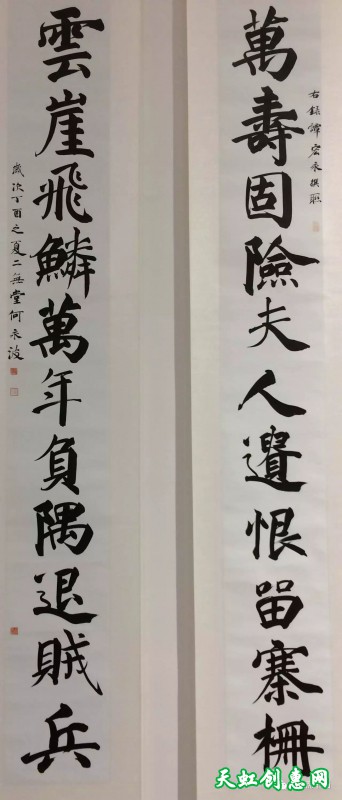 萬壽固險夫人遺恨留寨柵
右録譚宏永撰聯
雲崖飛鱗萬年負隅退賊兵
歲次丁酉之夏二無堂何永波
天虹创惠网